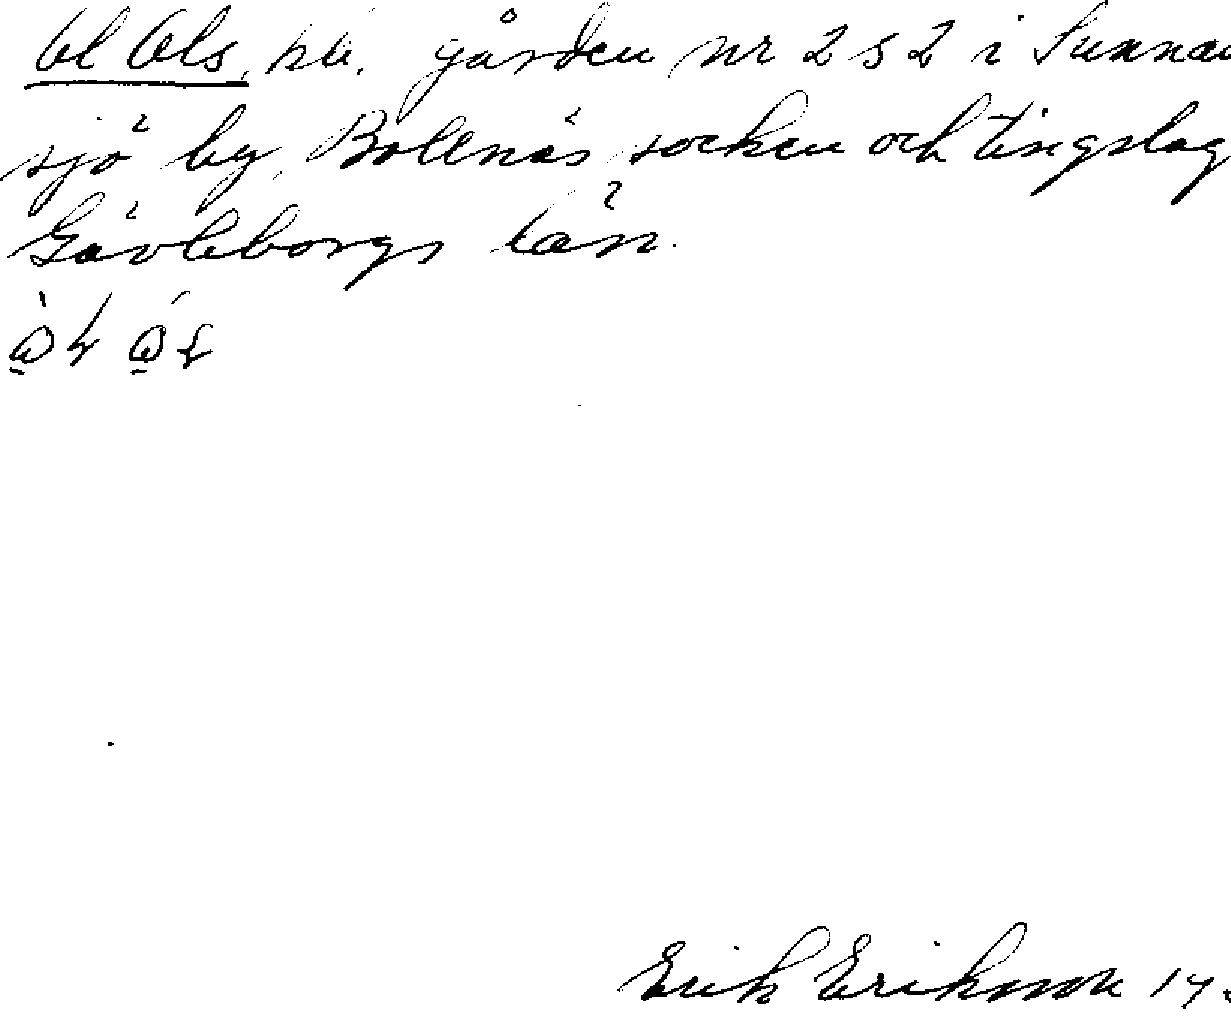 Ol Ols, på gården nr 2 s 2 i Sunnan
sjö by, Bollnäs socken och tingslag
Gävleborgs län.
Erik Eriksson 17.